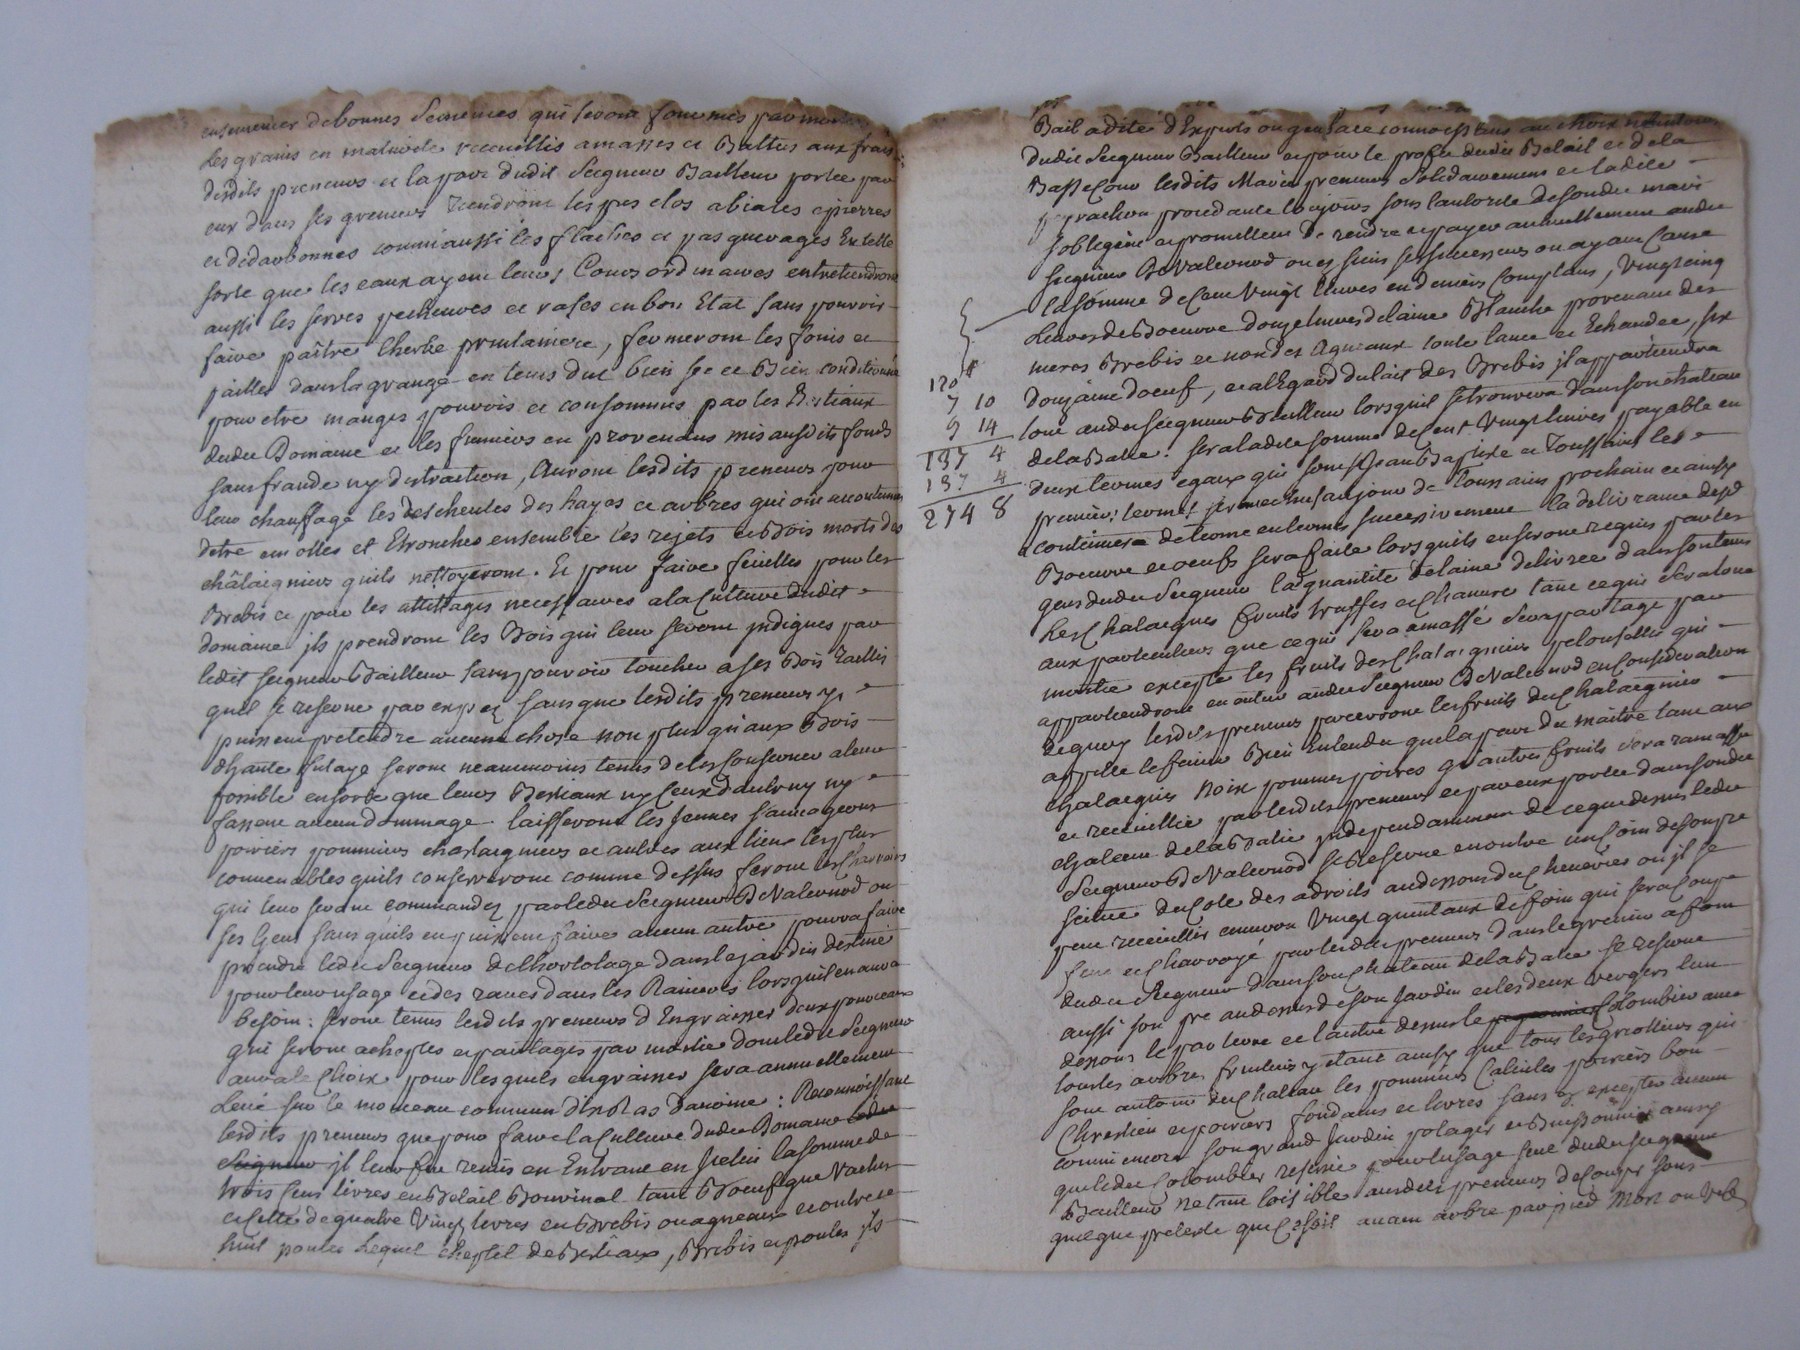 ensemencer de bonnes semences qui seront fournies par
Les grains en maturité receuillis amassés et Battus aux frais
desdits preneurs et la part dudit Seigneur Bailleur portée par
eux dans ses greniers Tiendront les prés clos abiales epierres
et comm'aussi les et pasquerages En telle
sorte que les eaux ayent leurs Cours ordinaires entretiendront
aussi les serves pecheures et rases en bon Etat sans pouvoir
faire paître l'herbe printaniere, fermeront les foins et
pailles dans la grange en tems du bien sec et Bien conditionné
pour etre mangés pourris et consommés par les Bestiaux
dudit Domaine et les fumiers en provenans mis ausdits fonds
sans fraude ny distraction, Auront lesdits preneurs pour
leur chauffage les descheutes des hayes et arbres qui ont accoutumés
detre emottes et Etronchés ensemble les rejets et Bois morts des
châtaigniers qu'ils nettoyeront. Et pour faire feuilles pour les
Brebis et pour les attelages necessaires a la Culture dudit
domaine ils prendront les Bois qui leur seront indiqués par
ledit Seigneur Bailleur sans pouvoir toucher a ses Bois Taillis
quil se reserve par exprez sans que lesdits preneurs y
puissent pretendre aucune chose non plus qu'aux Bois
d'hante futaye seront neanmoins tenus de les conserver a leur
possible ensorte que leurs Bestiaux ny Ceux d'autruy ny
fassent aucun dommage. laisseront les Jeunes sauvageons
poiriers pommiers chataigniers et autres aux lieux les plus
convenables qu'ils conserveront comme dessus feront les Charrois
qui leur seront commandez par ledit Seigneur De Valernod ou
ses Gens sans qu'ils en puissent faire aucun autre pourra faire
prendre ledit Seigneur de l'hortolage dans le jardin destiné
pour leur usage et des raves dans les Ravieres lorsquil en aura
besoin: seront tenus lesdits preneurs d'Engraisser deux pourceaux
qui seront acheptés et partagés par moitié dont ledit Seigneur
aura le Choix pour lesquels engraisser sera annuellement
Levé sur le monceau commun d'avoine: Reconnoissant
lesdits preneurs que pour faire la Culture dudit Domaine ledit
Seigneur il leur fut remis en Entrant en Icelui la somme de
trois livres en Betail Bouvinal tant Boeufs que Vaches
et celle de quatre Vingt livres en Brebis ou agneaux et outre ce
huit poules Lequel cheptel de Bestiaux, Brebis et poules ils
Bail a dite d'Experts ou gens a ce connoissans au choix neantmoins
dudit Seigneur Bailleur et pour le profit dudit Betail et de la
Basse Cour lesdits Mariés preneurs solidairement et ladite
procedante toujours sous l'autorité de sondit mari
s'obligent et promettent De rendre et payer annuellement audit
Seigneur De Valernod ou es siens successeurs ou ayant Cause
la somme de Cent Vingt livres en deniers Comptans, Vingt cinq
livres de Boeurre douze livres de laine Blanche provenant des
meres Brebis et non des Agneaux toute lavée et Echaudée, six
120 #
douzaine d'oeuf, et a l'Egard du lait des Brebis il appartiendra
7 10
tout audit Seigneur Bailleur lorsquil se trouvera dans son chateau
9 14
de la Batie. Sera ladite somme de Cent Vingt livres payable en
137 4
deux termes egaux qui sont St Jean Baptiste et Toussaint le
137 4
premier terme au jour de Toussains prochain et ainsy
274 8
continuera de terme en terme successivement la delivrance desd
Boeurre et oeufs sera faite lorsqu'ils en seront requis par les
gens dudit Seigneur la quantité de laine delivrée dans son tems
Les Chataignes fruits truffes et Chanvre tant ce qui sera loué
aux particuliers que ce qui sera amassé sera partagé par
moitié excepté les fruits des Chataigniers pelousette qui
appartiendront en entier audit Seigneur De Valernod en Consideration
de quoy lesdits preneurs percevront les fruits du Chataignier
appellé le feinier Bien Entendu que la part du maître tant aux
Chataignes Noix pommes poires qu'autres fruits sera ramassée
et receuillie par lesdits preneurs et par eux portée dans sondit
Chateau de la Batie independamment de ce que dessus ledit
Seigneur De Valernod se Reserve en outre un Coin de son pré
scitué du Coté des adroits au dessous du Chenevier ou il se
peut receuillir environ Vingt quintaux de foin qui sera Coupé
fané et Charroyé par lesdits preneurs dans le grenier a foin
dudit Seigneur dans son Chateau de la Batie se reserve
aussi son pré au dessus de son Jardin et les deux vergers l'un
dessous le parterre et l'autre dessus le Colombier avec
tous les arbres fruitiers y etant ainsy que tous les griottiers qui
sont autour du Chateau les pommiers Calvilles poiriers bon-
Chretien et poiriers fondans et livres sans y excepter aucun
comm'encore son grand Jardin potager et ainsy
que ledit Colombier reservé pour l'usage seul dudit Seigneur
Bailleur Netant loisible ausdits preneurs de Couper sous
quelque pretexte que Ce soit aucun arbre par pied Mort ou Vif